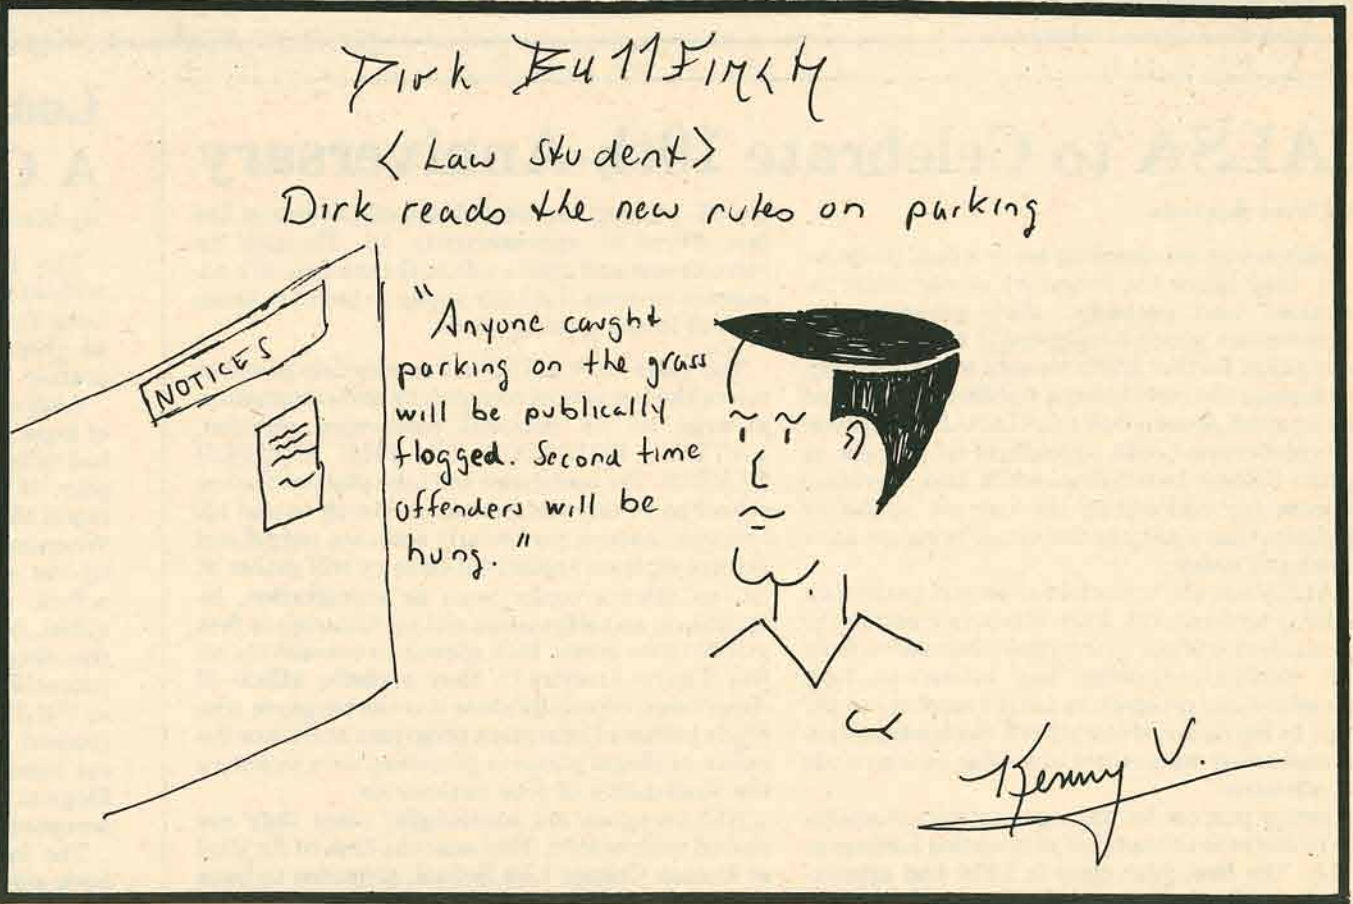 Dirk BullFinch
<Law Student>
Dirk reads the new rules on parking
NOTICES
"Anyone caught
parking on the grass
will be publically
flogged. Second time
offenders will be
hung."
Kenny V.